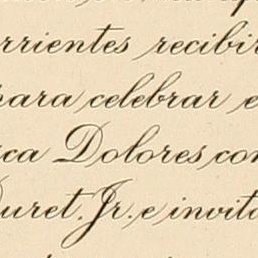 rrientes recibir
para celebrar e
ca Dolores con
Duret, Jr. e invita